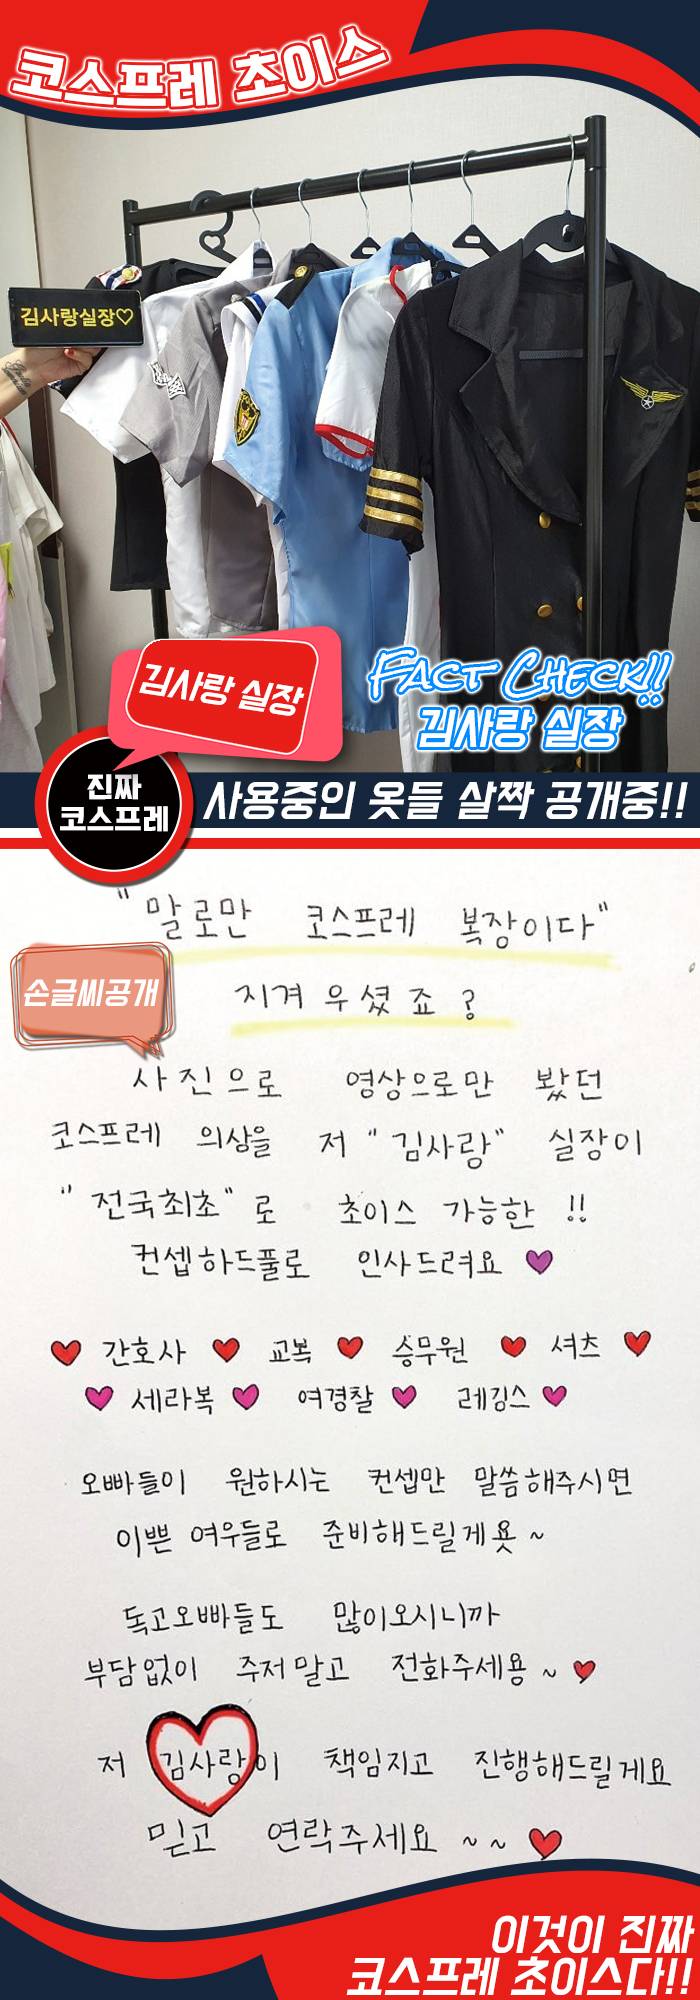 코스프레 초이스
김사랑실장♡
김사랑 실장
FACT CHECK!!
김사랑 실장
진짜
코스프레
사용중인 옷들 살짝 공개중!!
"말로만 코스프레 복장이다"
손글씨공개
지겨우셨죠?
사진으로 영상으로만 봤던
코스프레 의상을 저 "김사랑" 실장이
"전국최초"로 초이스 가능한 !!
컨셉하드풀로 인사드려요 💜
❤ 간호사 ❤ 교복 ❤ 승무원 ❤ 셔츠 ❤
💜 세라복 💜 여경찰 💜 레깅스 💜
오빠들이 원하시는 컨셉만 말씀해주시면
이쁜 여우들로 준비해드릴게욧~
독고오빠들도 많이오시니까
부담없이 주저말고 전화주세용~ ❤
저 김사랑이 책임지고 진행해드릴게요
믿고 연락주세요 ~~ ❤
이것이 진짜
코스프레 초이스다!!